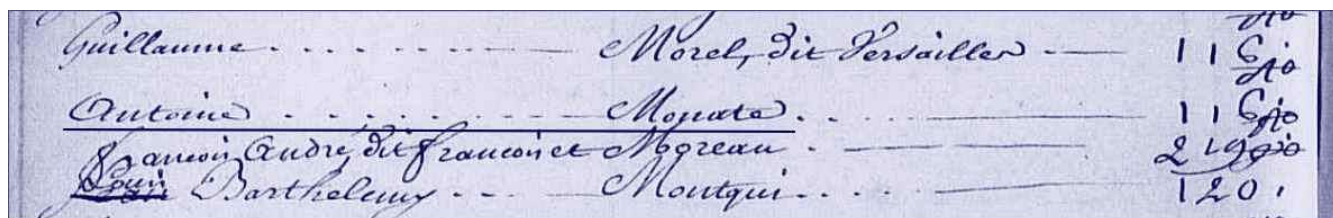 Guillaume - - - - - - Morel, dit Versailles - 116
Antoine - - - - - - Monate - 116
françois, André, dit françoise et Moreau - 219
Louis Barthelemy - - - Montqui - 120